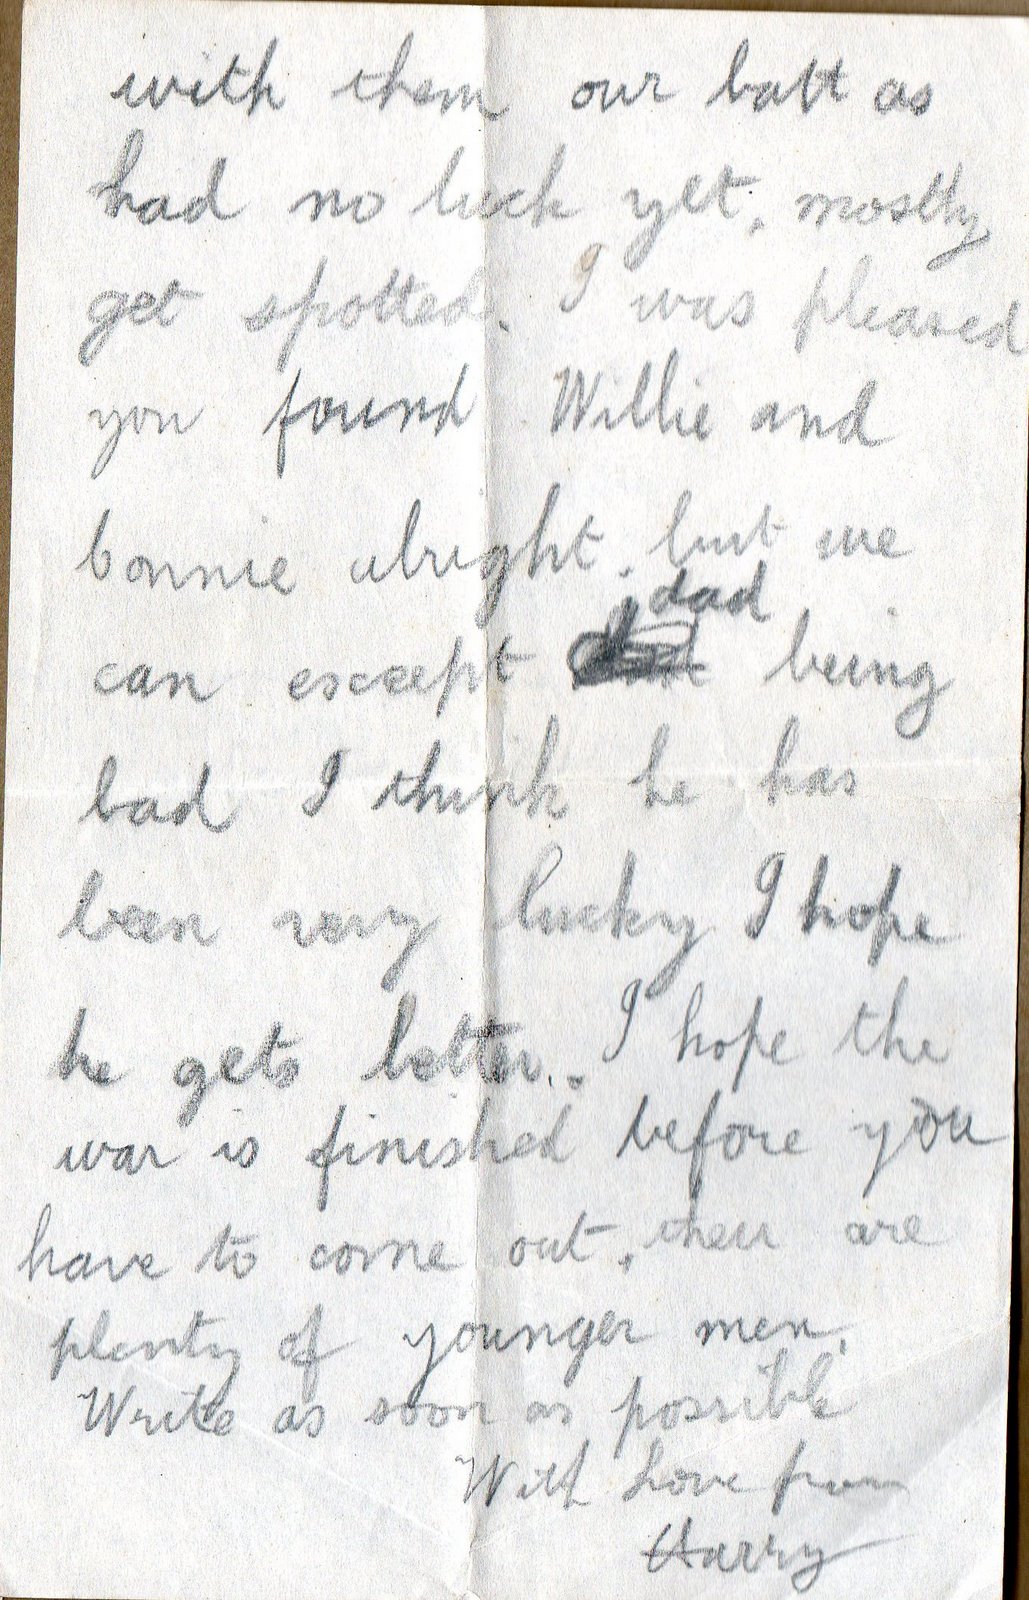 with them our batt as
had no luck yet, mostly
get spotted. I was pleased
you found Willie and
bonnie alright, but we
dad
can escept being
bad I think he has
been very lucky I hope
he gets better.. I hope the
war is finished before you
have to come out, their are
plenty of younger men.
Write as soon as possible
With love from
Harry